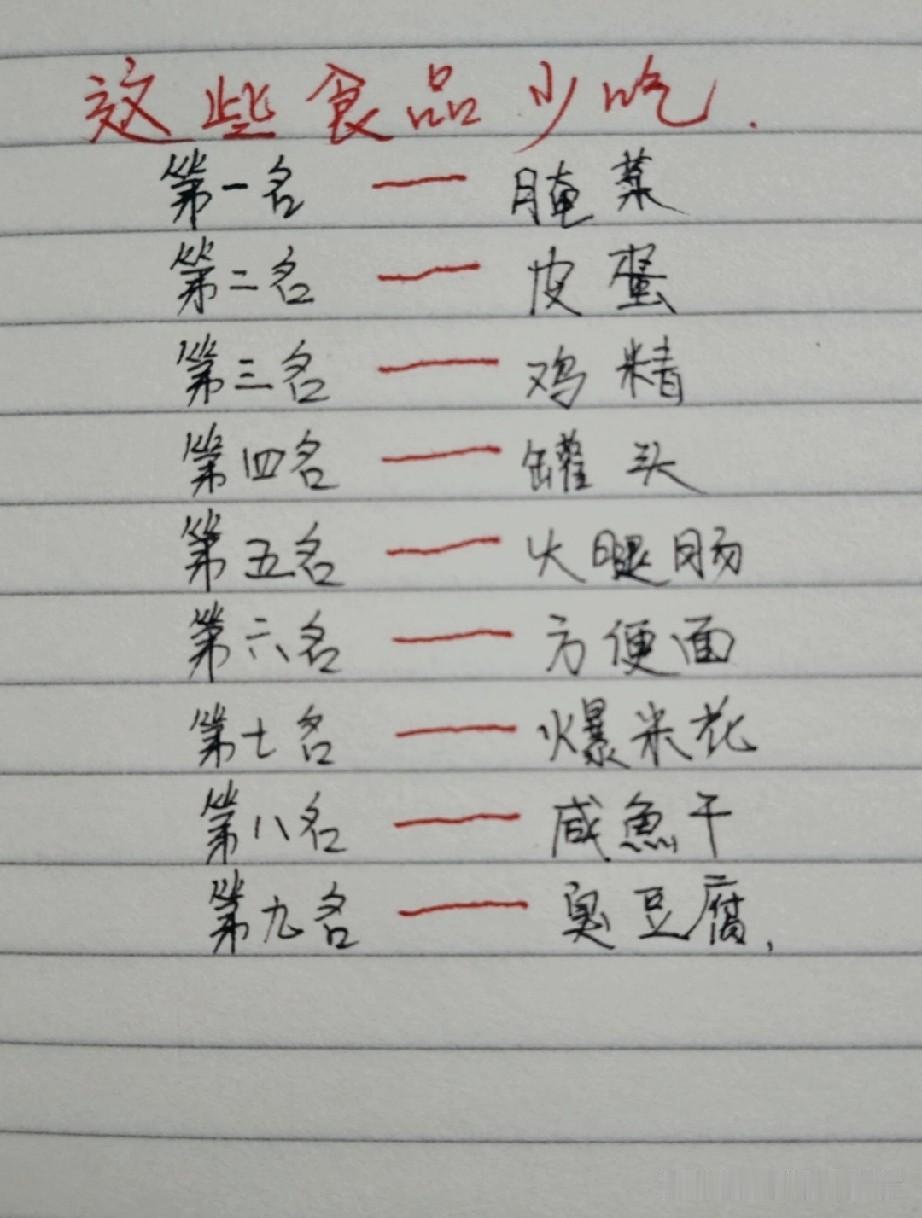 这些食品少吃.
第一名 — 腌菜
第二名 — 皮蛋
第三名 — 鸡精
第四名 — 罐头
第五名 — 火腿肠
第六名 — 方便面
第七名 — 爆米花
第八名 — 咸魚干
第九名 — 臭豆腐,